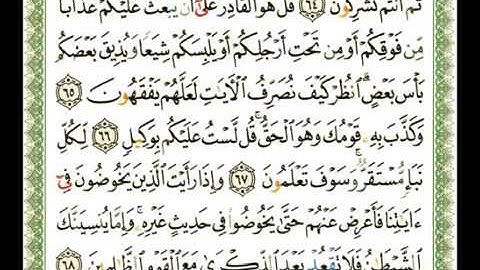 ثُمَّ أَنتُمْ تُشْرِكُونَ ٦٤ قُلْ هُوَ ٱلْقَادِرُ عَلَىٰٓ أَن يَبْعَثَ عَلَيْكُمْ عَذَابًا
مِّن فَوْقِكُمْ أَوْ مِن تَحْتِ أَرْجُلِكُمْ أَوْ يَلْبِسَكُمْ شِيَعًا وَيُذِيقَ بَعْضَكُم
بَأْسَ بَعْضٍ ۗ ٱنظُرْ كَيْفَ نُصَرِّفُ ٱلْأَيَـٰتِ لَعَلَّهُمْ يَفْقَهُونَ ٦٥
وَكَذَّبَ بِهِۦ قَوْمُكَ وَهُوَ ٱلْحَقُّ ۚ قُل لَّسْتُ عَلَيْكُم بِوَكِيلٍ ٦٦ لِّكُلِّ
نَبَإٍ مُّسْتَقَرٌّ ۚ وَسَوْفَ تَعْلَمُونَ ٦٧ وَإِذَا رَأَيْتَ ٱلَّذِينَ يَخُوضُونَ فِىٓ
ءَايَـٰتِنَا فَأَعْرِضْ عَنْهُمْ حَتَّىٰ يَخُوضُوا۟ فِى حَدِيثٍ غَيْرِهِۦ ۚ وَإِمَّا يُنسِيَنَّكَ
ٱلشَّيْطَـٰنُ فَلَا تَقْعُدْ بَعْدَ ٱلذِّكْرَىٰ مَعَ ٱلْقَوْمِ ٱلظَّـٰلِمِينَ ٦٨